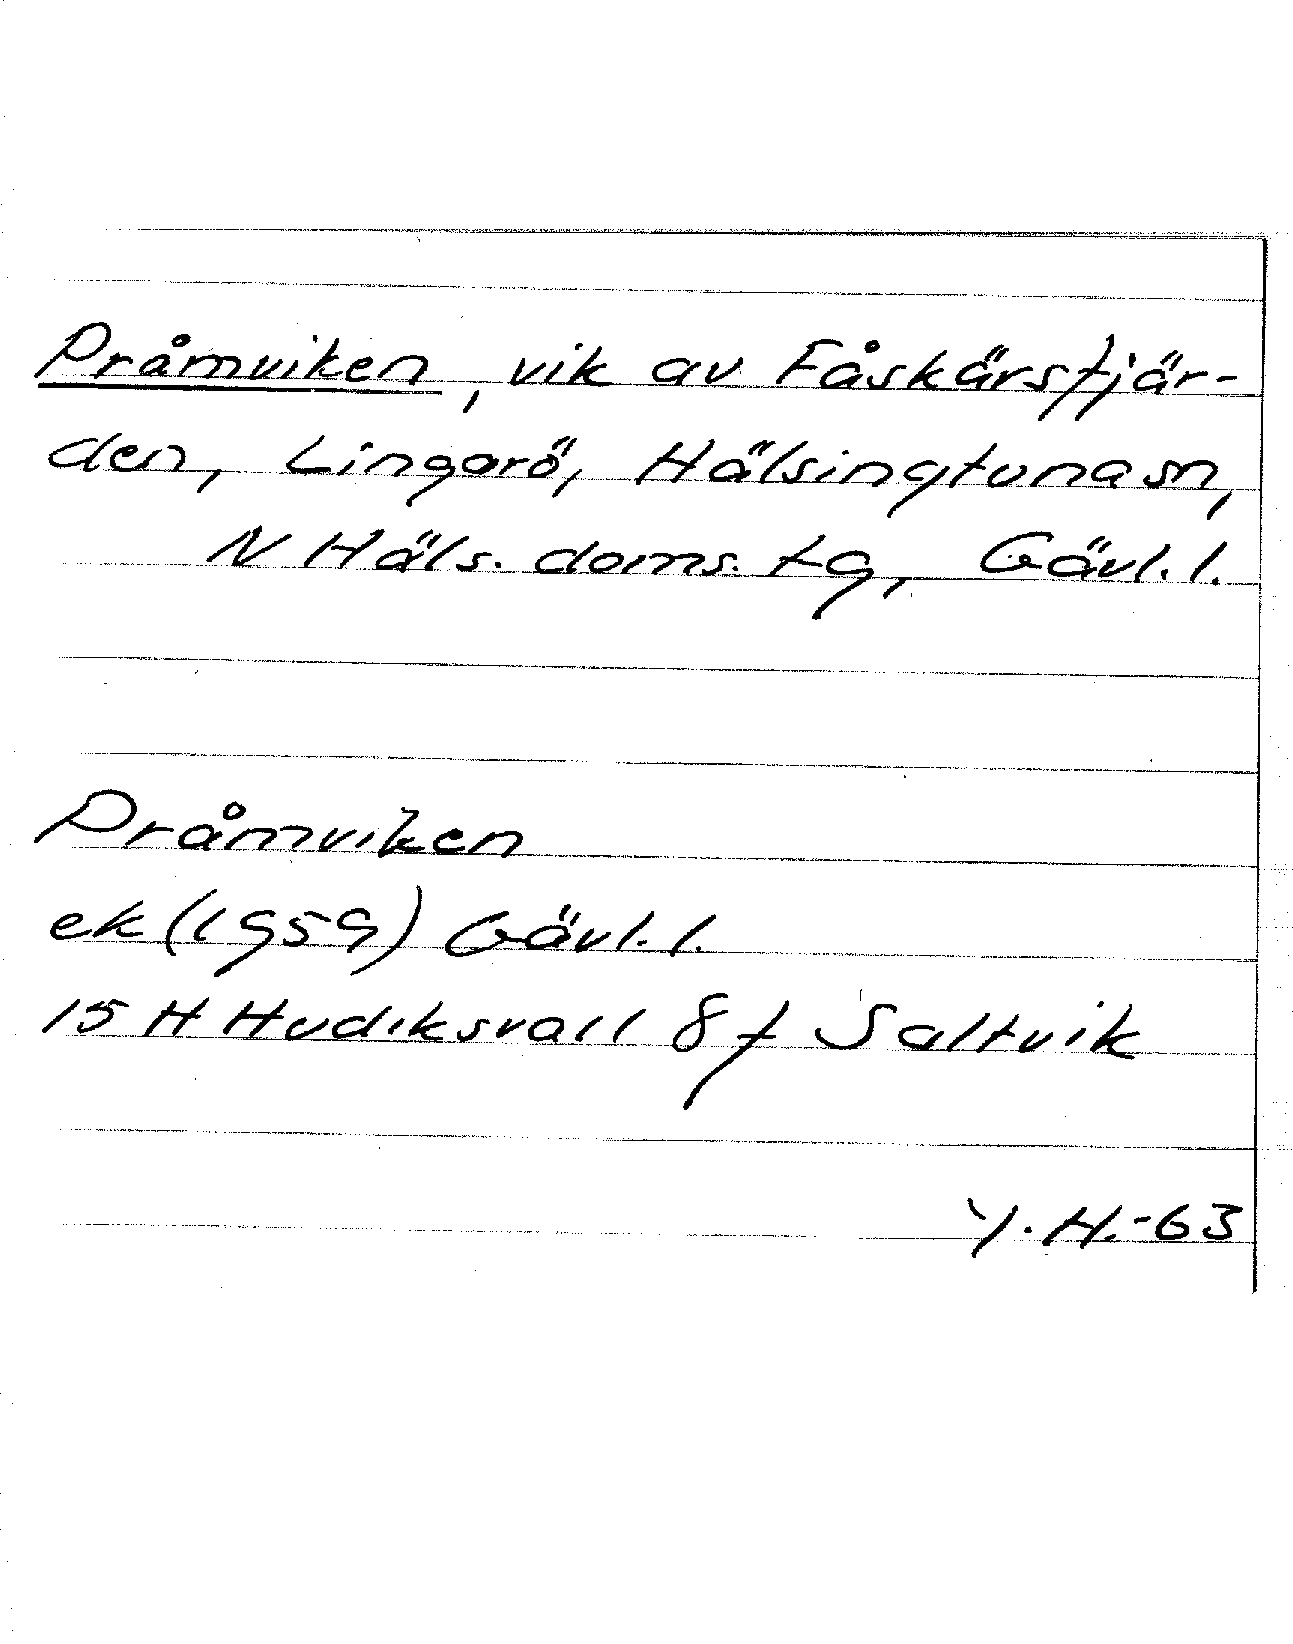 Pråmviken, vik av Fåskärsfjär-
den, Lingarö, Hälsingtuna sn,
N Häls. doms. tg, Gävl. l.
Pråmviken
ek (1959) Gävl. l.
15 H Hudiksvall 8 f Saltvik
Y. H. -63